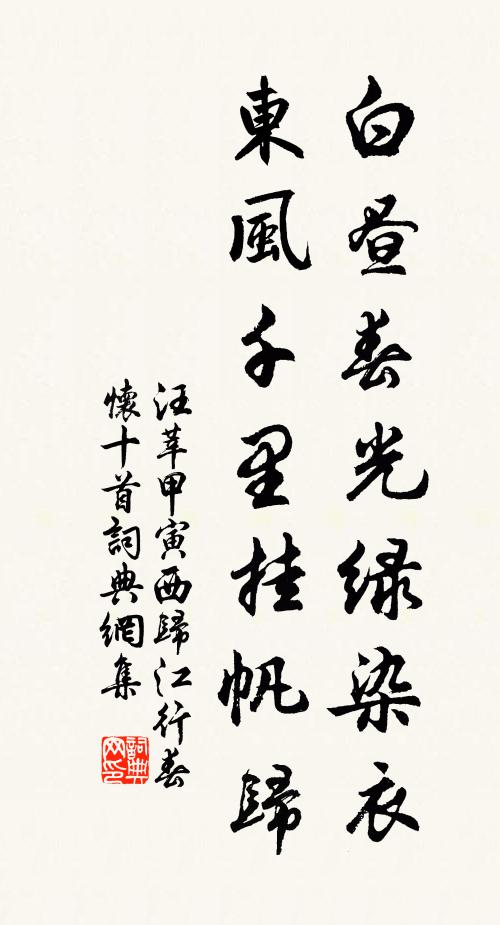 白昼春光緑染衣
東風千里挂帆歸
汪莘甲寅西歸江行春
懷十首詞典網集
詞典網印